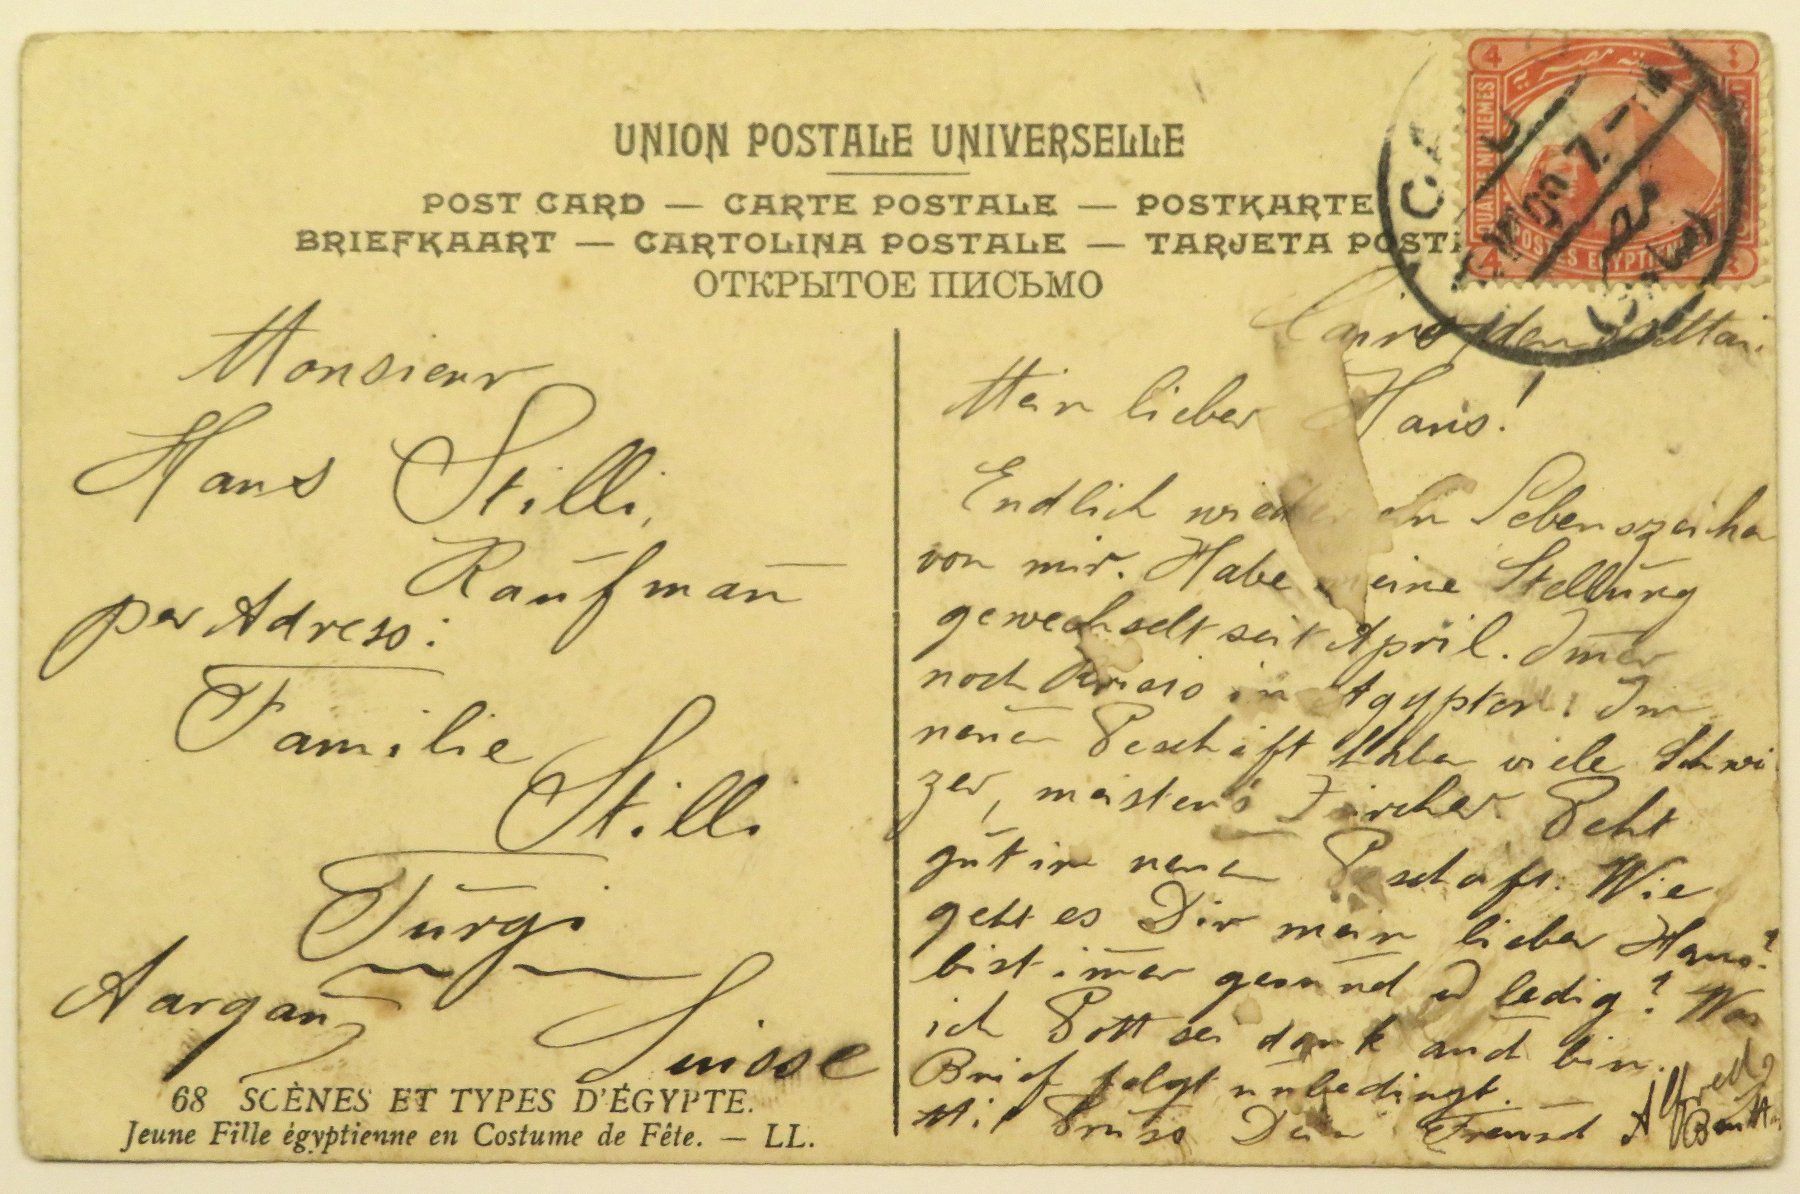 UNION POSTALE UNIVERSELLE
POST CARD — CARTE POSTALE — POSTKARTE
BRIEFKAART — CARTOLINA POSTALE — TARJETA POST
ОТКРЫТОЕ ПИСЬМО
4
QUATRE MILLIEMES
POSTES EGYPTIENNES
4
CAI
Monsieur
Hans Stilli,
Kaufman̄
per Adress:
Familie
Stilli
Turgi
Aargau
Suisse
68 SCÈNES ET TYPES D'ÉGYPTE.
Jeune Fille égyptienne en Costume de Fête. — LL.
Cairo, den Mai.
Mein lieber Hans!
Endlich wieder ein Lebenszeichen
von mir. Habe meine Stellung
gewechselt seit April. Im̄er
noch Krisis in Ägypten. Im
neuen Geschäft haben viele Schwei
zer, meistens Zürcher. Geht
gut im neuen Geschäft. Wie
geht es Dir mein lieber Hans?
bist im̄er gesund u ledig? Was
ich Gott sei dank auch bin.
Brief folgt unbedingt.
Mit Gruss Dein Freund Alfred